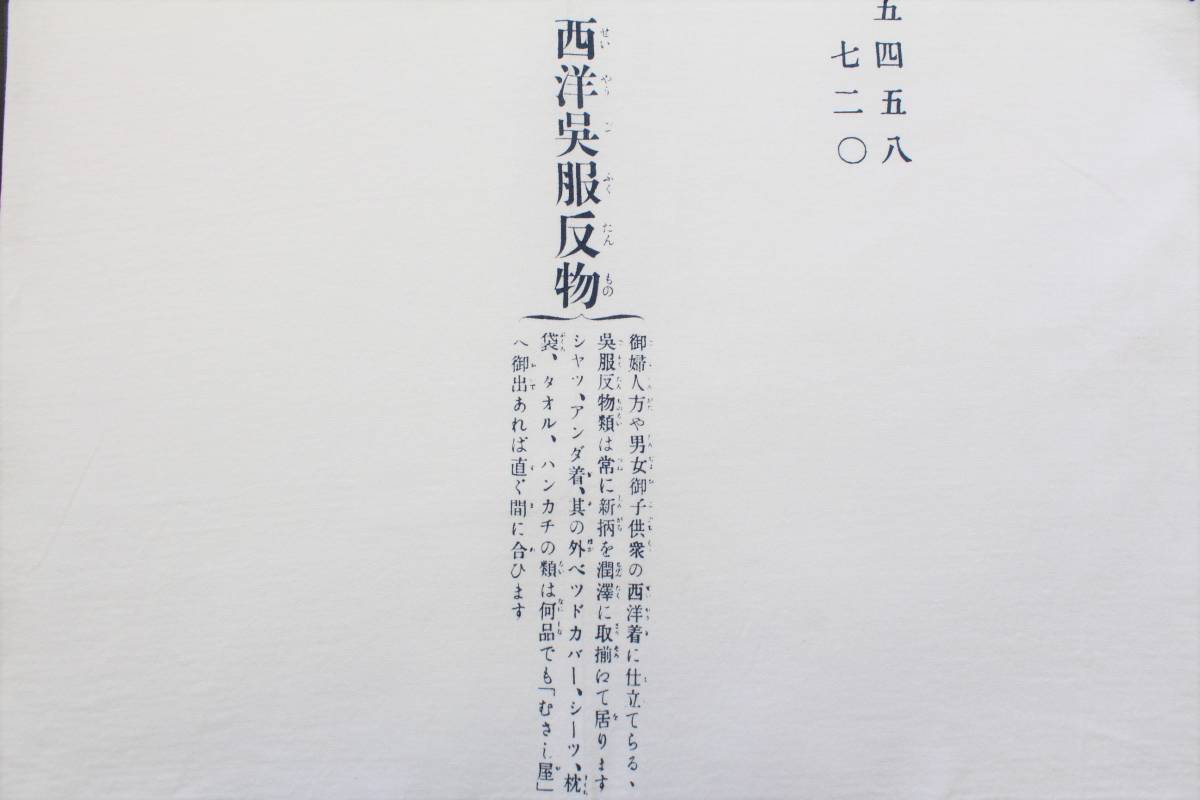 五四五八
七二〇
西洋呉服反物
御婦人方や男女御子供衆の西洋着に仕立てらる、
呉服反物類は常に新柄を潤澤に取揃にて居ります
シヤツ、アンダ着、其の外ベツドカバー、シーツ、枕
袋、タオル、ハンカチの類は何品でも「むさし屋」
へ御出あれば直ぐ間に合ひます